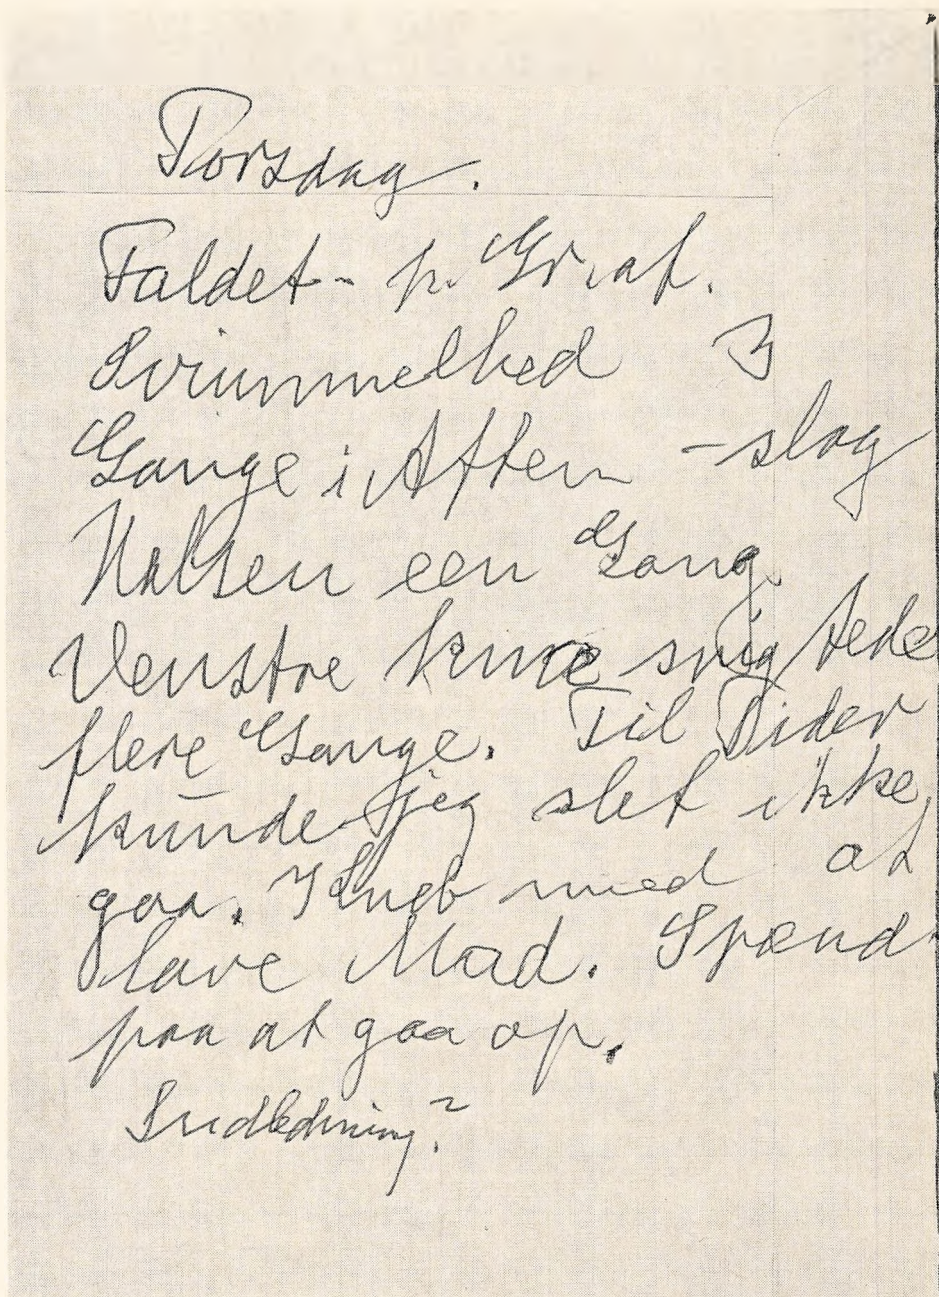 Torsdag.
Faldet - p.
Svimmelhed 3
Gange i Aften - slog
een Gang.
Venstre Knæ svigtede
flere Gange. Til Tider
kunde jeg slet ikke
gaa. Kneb med at
lave Mad. Spænd
paa at gaa op.
Indledning?